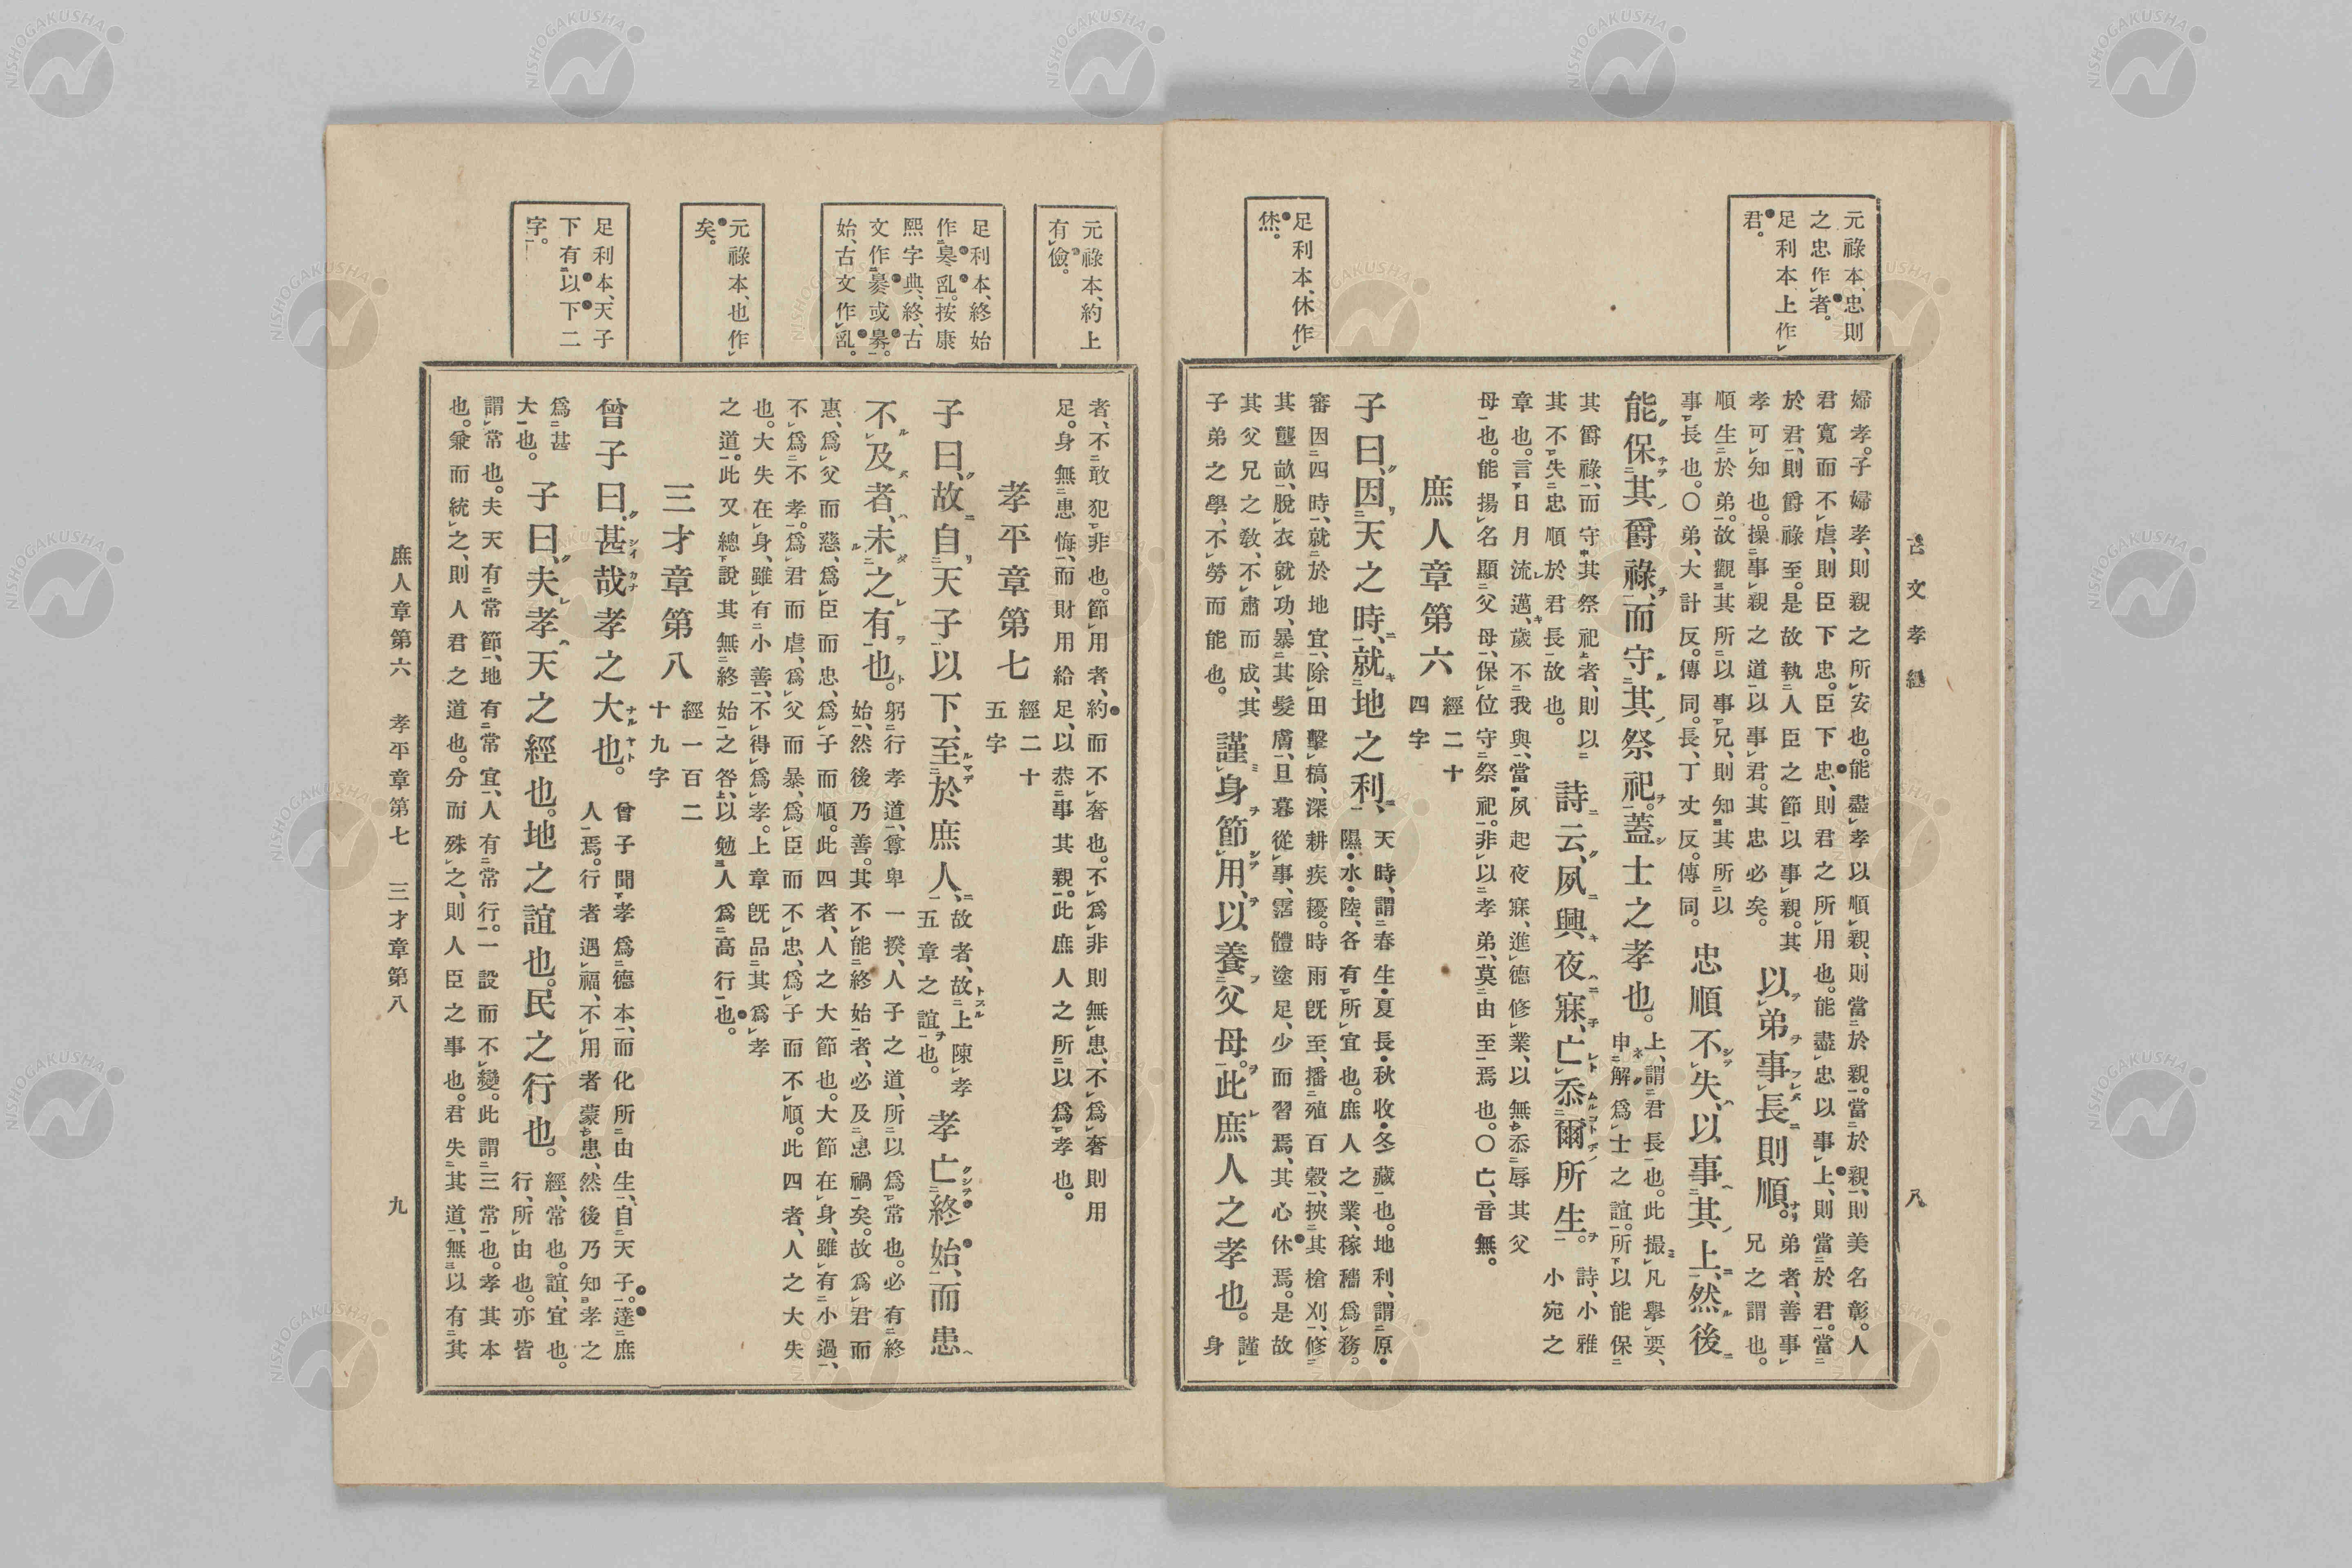 古文孝經
八
元祿本、忠則
之忠作者。
足利本上作
君。
足利本、休作
烋。
婦孝。子婦孝、則親之所安也。能盡孝以順親、則當於親。當於親、則美名彰。人
君寬而不虐、則臣下忠。臣下忠、則君之所用也。能盡忠以事上、則當於君。當
於君、則爵祿至。是故執人臣之節以事親。其
孝可知也。操事親之道以事君。其忠必矣。
以弟事長則順。
弟者、善事
兄之謂也。
順生於弟。故觀其所以事兄、則知其所以
事長也。〇弟、大計反。傳同。長、丁丈反。傳同。
忠順不失、以事其上、然後
能保其爵祿、而守其祭祀。蓋士之孝也。
上、謂君長也。此撮凡舉要、
申解爲士之誼。所以能保
其爵祿、而守其祭祀者、則以
其不失忠順於君長故也。
詩云、夙興夜寐、亡忝爾所生。
詩、小雅
小宛之
章也。言日月流邁、歲不我與、當夙起夜寐、進德修業、以無忝辱其父
母也。能揚名顯父母、保位守祭祀。非以孝弟、莫由至焉也。〇亡、音無。
庶人章第六
經二十
四字
子曰、因天之時、就地之利、
天時、謂春生・夏長・秋收・冬藏也。地利、謂原・
隰・水・陸、各有所宜也。庶人之業、稼穡爲務。
審因四時、就於地宜、除田擊槁、深耕疾耰。時雨旣至、播殖百穀、挾其槍刈、修
其壟畝、脫衣就功、暴其髮膚、旦暮從事、霑體塗足、少而習焉、其心休焉。是故
其父兄之敎、不肅而成、其
子弟之學、不勞而能也。
謹身節用、以養父母。此庶人之孝也。
謹身
元祿本、約上
有儉。
足利本、終始
作㫺乱。按康
熙字典、終、古
文作㬥或㫺。
始、古文作乱。
元祿本、也作
矣。
足利本、天子
下有以下二
字。
者、不敢犯非也。節用者、約而不奢也。不爲非則無患、不爲奢則用
足。身無患悔、而財用給足、以恭事其親。此庶人之所以爲孝也。
孝平章第七
經二十
五字
子曰、故自天子以下、至於庶人、
故者、故上陳孝
五章之誼也。
孝亡終始、而患
不及者、未之有也。
躬行孝道、尊卑一揆、人子之道、所以爲常也。必有終
始、然後乃善。其不能終始者、必及患禍矣。故爲君而
惠、爲父而慈、爲臣而忠、爲子而順。此四者、人之大節也。大節在身、雖有小過、
不爲不孝。爲君而虐、爲父而暴、爲臣而不忠、爲子而不順。此四者、人之大失
也。大失在身、雖有小善、不得爲孝。上章旣品其爲孝
之道。此又總說其無終始之咎、以勉人爲高行也。
三才章第八
經一百二
十九字
曾子曰、甚哉孝之大也。
曾子聞孝爲德本、而化所由生、自天子。達庶
人焉。行者遇福、不用者蒙患、然後乃知孝之
爲甚
大也。
子曰、夫孝天之經也。地之誼也。民之行也。
經、常也。誼、宜也。
行、所由也。亦皆
謂常也。夫天有常節、地有常宜、人有常行。一設而不變。此謂三常也。孝其本
也。兼而統之、則人君之道也。分而殊之、則人臣之事也。君失其道、無以有其
庶人章第六 孝平章第七 三才章第八
九